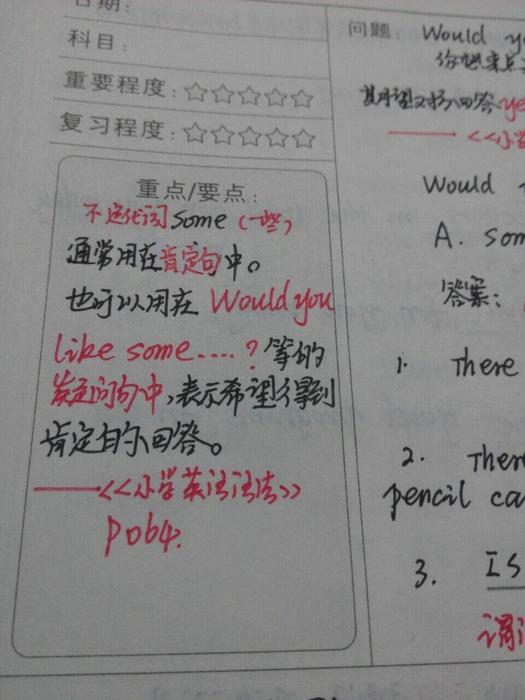 日期:
科目:
重要程度:☆☆☆☆☆
复习程度:☆☆☆☆☆
重点/要点:
不定代词some(一些)
通常用在肯定句中。
也可以用在Would you
like some....?等的
疑问句中,表示希望得到
肯定的回答。
——<<小学英语语法>>
P064.
问题: Would
你想要点
期望对方回答ye
——<<小学
Would
A. som
答案:
1. There
2. There
pencil ca
3. Is
谓语